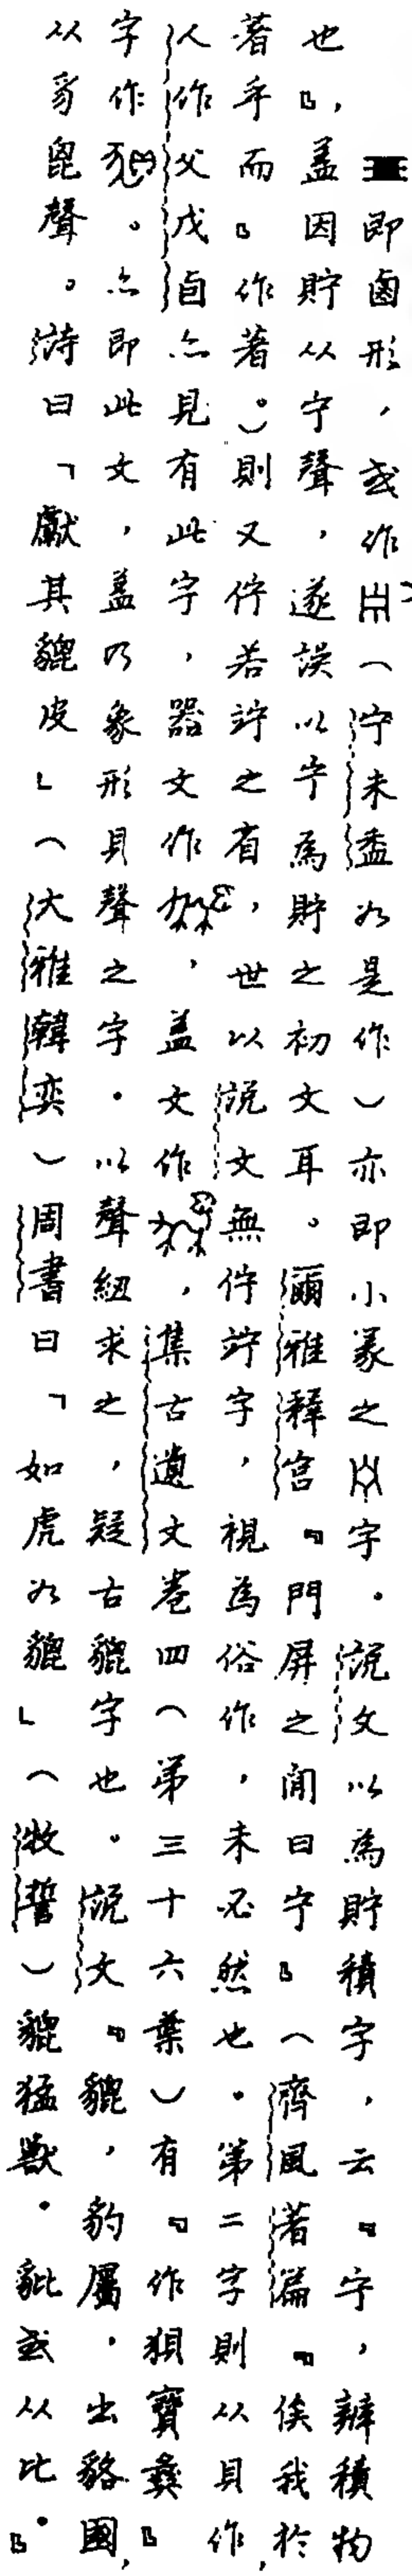 即鹵形，或作（宁未盉如是作）亦即小篆之字．說文以為貯積字，云『宁，辨積物
也』，蓋因貯从宁聲，遂誤以宁為貯之初文耳。爾雅釋宮『門屏之間曰宁』（齊風著篇『俟我於
著乎而』作著。）則又佇若竚之省，世以說文無佇竚字，視為俗作，未必然也．第二字則从貝作，
人作父戊卣亦見有此字，器文作，蓋文作，集古遺文卷四（第三十六葉）有『作狽寶彝』
字作。亦即此文，蓋乃象形貝聲之字．以聲紐求之，疑古貔字也。說文『貔，豹屬，出貉國，
从豸毘聲。詩曰「獻其貔皮」（大雅韓奕）周書曰「如虎如貔」（牧誓）貔猛獸．豼或从比．』